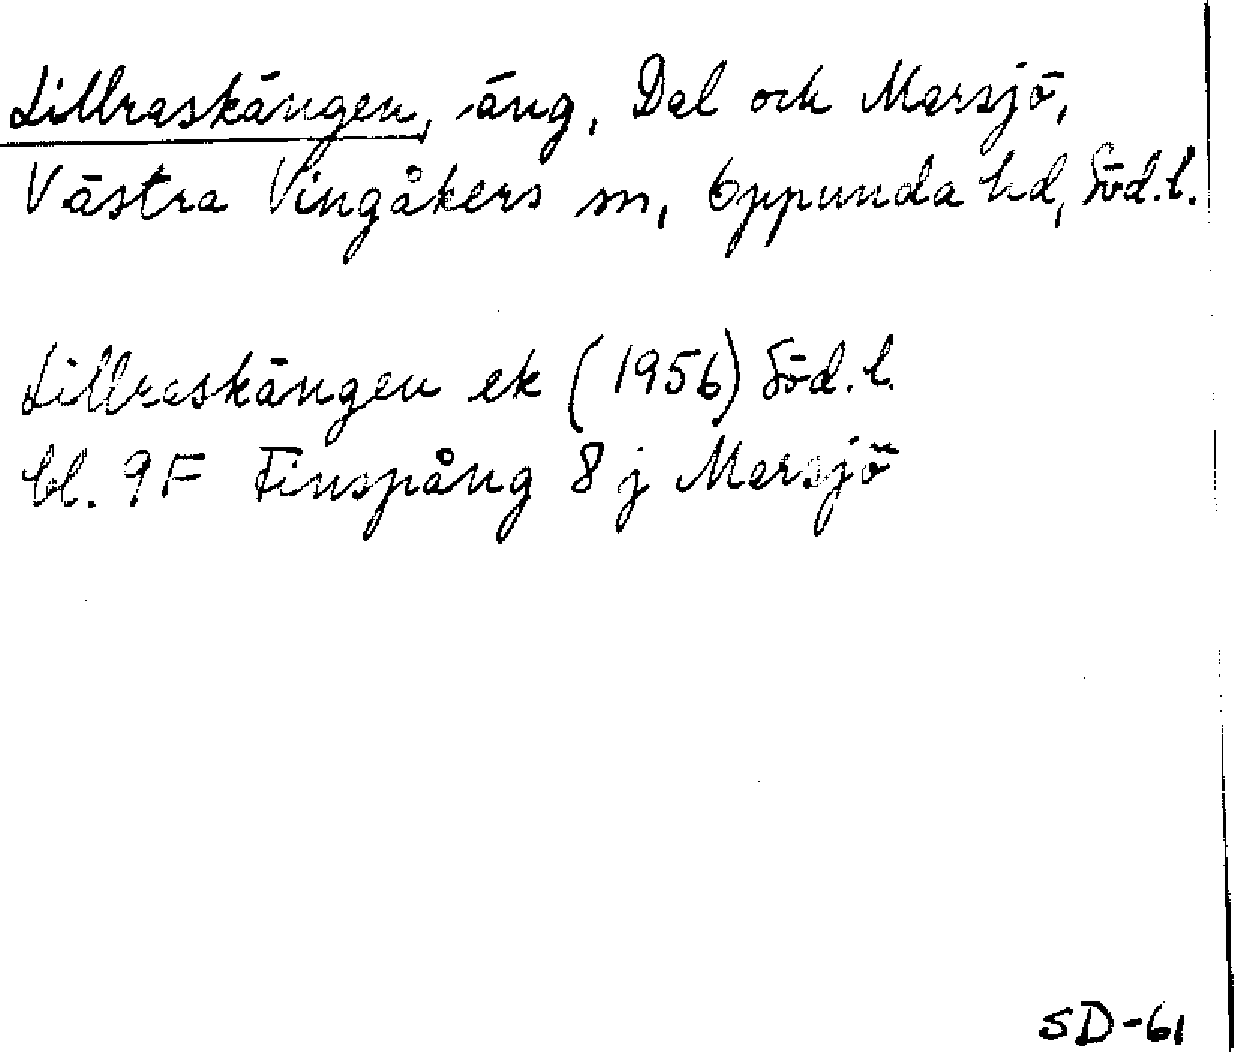 Lillraskängen, äng, Dal och Marsjö,
Västra Vingåkers sn, Oppunda hd, Söd.l.
Lillraskängen ek (1956) Söd.l.
bl. 9F Finspång 8 j Marsjö
SD-61